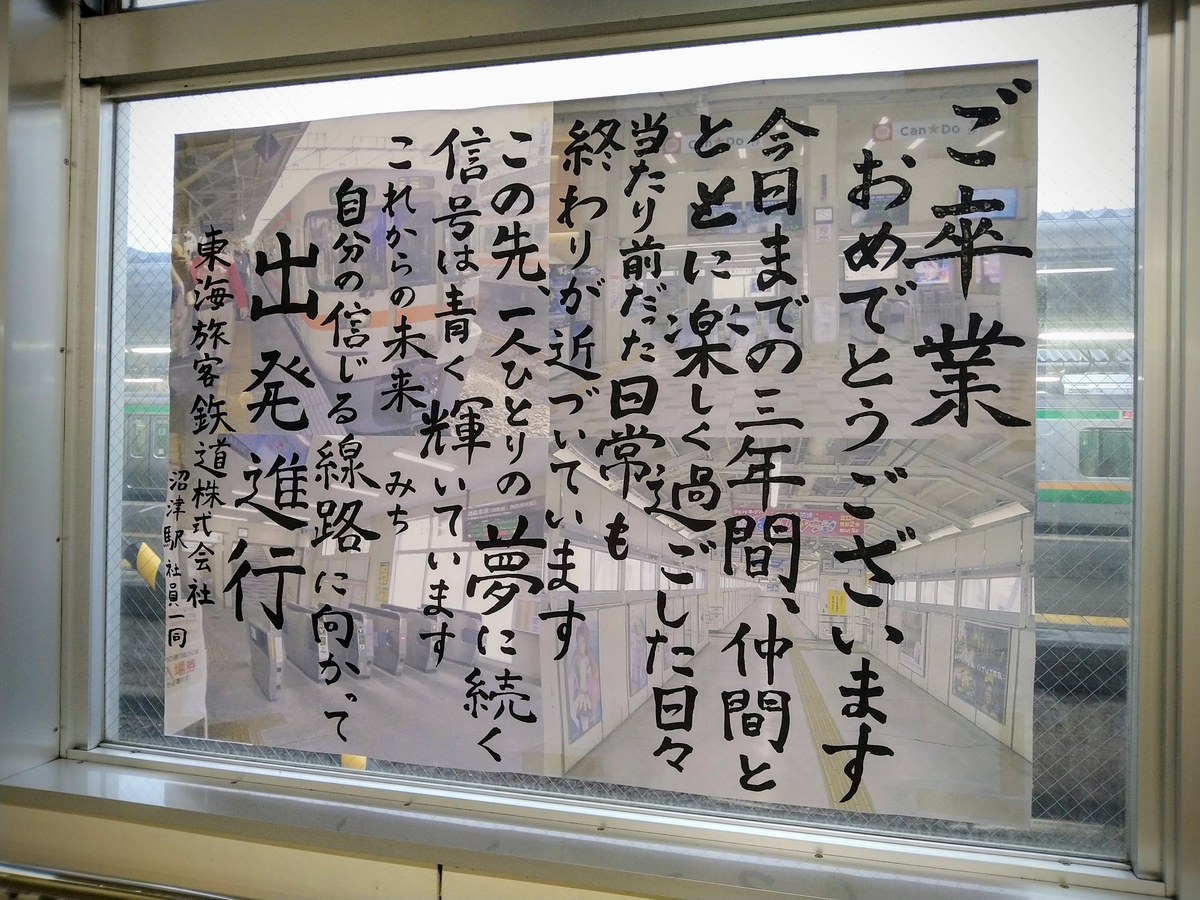 ご卒業
おめでとうございます
今日までの三年間、仲間と
ともに楽しく過ごした日々
当たり前だった日常も
終わりが近づいています
この先、一人ひとりの夢に続く
信号は青く輝いています
これからの未来 みち
自分の信じる線路に向かって
出発進行
東海旅客鉄道株式会社
沼津駅 社員一同
Can★Do
Can★Do